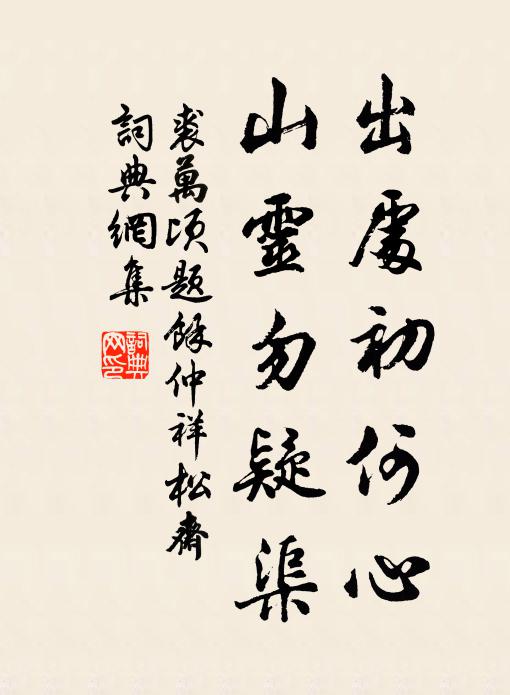 出處初何心
山靈勿疑渠
裘萬頃題餘仲祥松齋
詞典網集
詞典网印